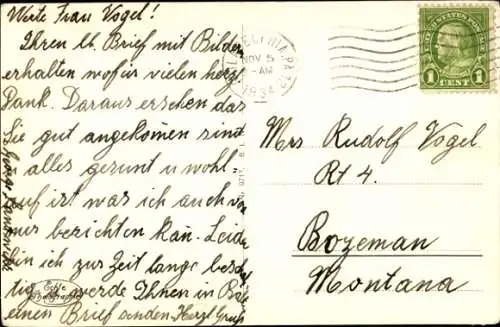 Werte Frau Vogel!
Ihren lb. Brief mit Bilder
erhalten wofür vielen herzl
Dank. Daraus ersehen das
Sie gut angekommen sind
u alles gesunt u wohl
auf ist was ich auch von
uns berichten kan. Leide
bin ich zur Zeit lange besch
tig werde Ihnen in Bäl
einen Brief senden Herzl. Gruß
PHILADELPHIA, PA.
NOV 5
AM
1934
UNITED STATES POSTAGE
1 CENT 1
Mrs Rudolf Vogel
Rt 4.
Bozeman
Montana
Echte
Photographie